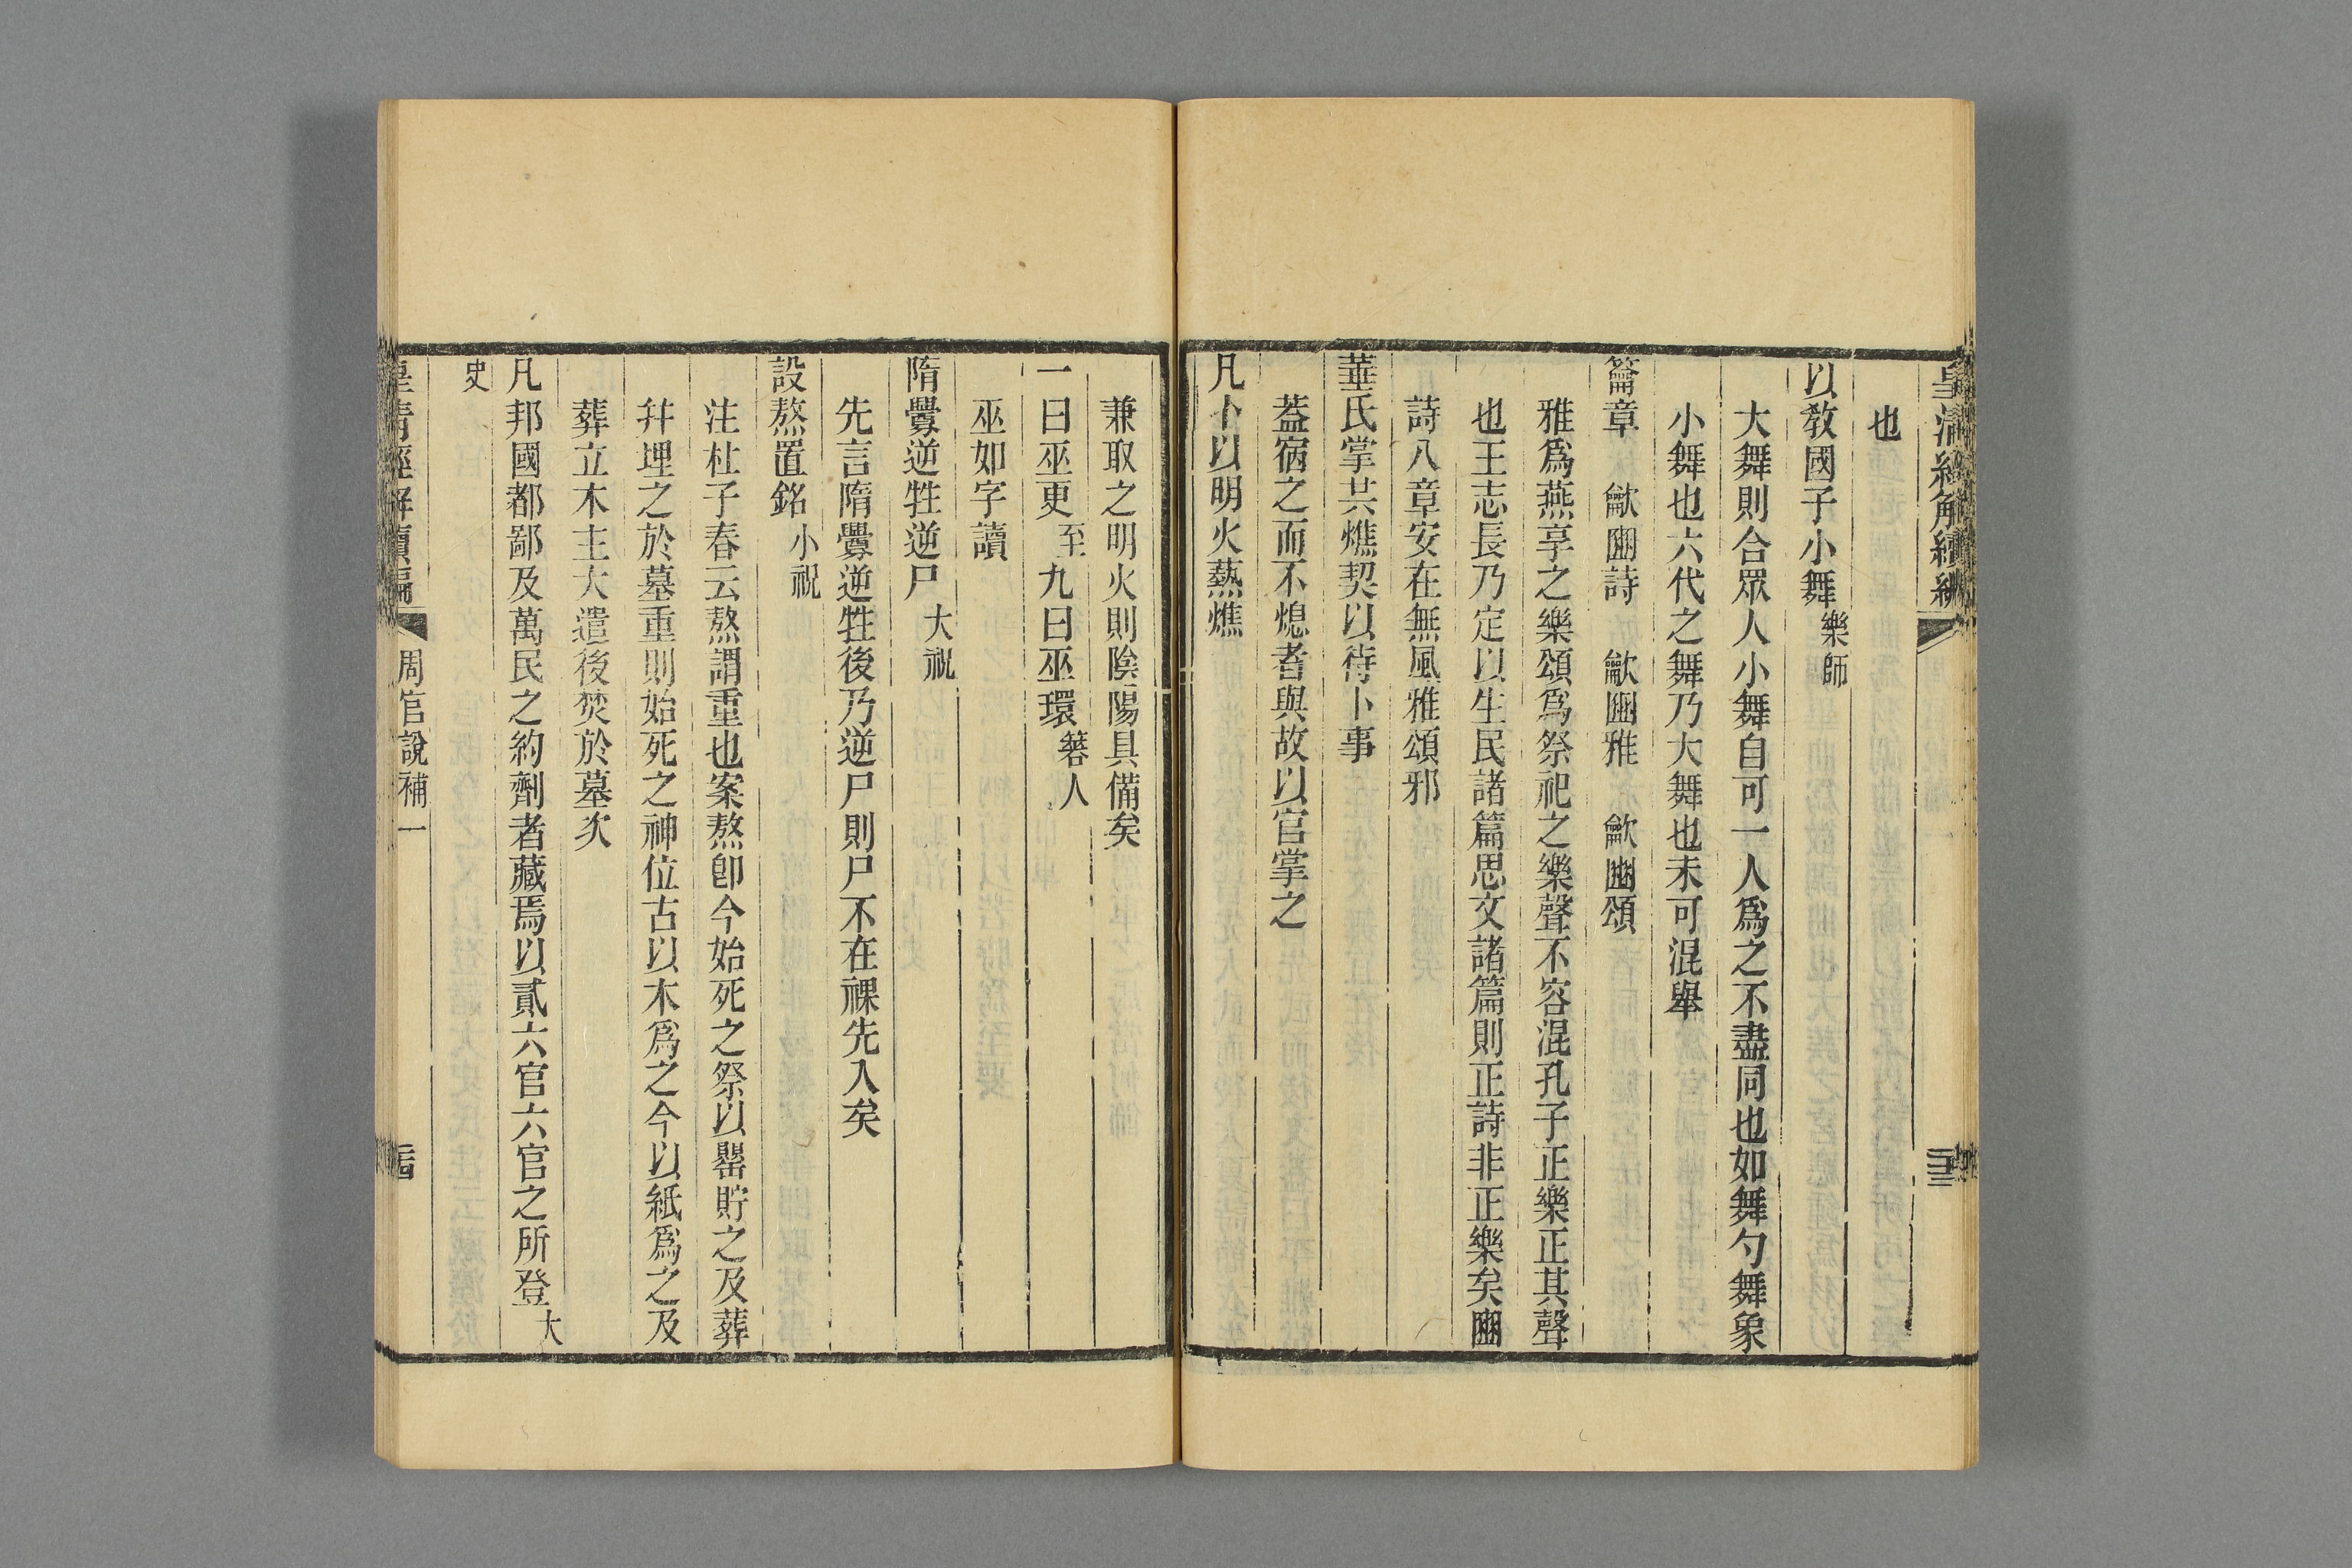 皇清經解續編
也
以敎國子小舞樂師
大舞則合眾人小舞自可一人爲之不盡同也如舞勺舞象
小舞也六代之舞乃大舞也未可混舉
籥章 龡豳詩 龡豳雅 龡豳頌
雅爲燕享之樂頌爲祭祀之樂聲不容混孔子正樂正其聲
也王志長乃定以生民諸篇思文諸篇則正詩非正樂矣豳
詩八章安在無風雅頌邪
菙氏掌共燋契以待卜事
葢宿之而不熄者與故以官掌之
凡卜以明火爇燋
兼取之明火則陰陽具備矣
一曰巫更至九曰巫環簭人
巫如字讀
隋釁逆牲逆尸大祝
先言隋釁逆牲後乃逆尸則尸不在祼先入矣
設熬置銘小祝
注杜子春云熬謂重也案熬卽今始死之祭以罌貯之及葬
幷埋之於墓重則始死之神位古以木爲之今以紙爲之及
葬立木主大遣後焚於墓次
凡邦國都鄙及萬民之約劑者藏焉以貳六官六官之所登大
史
皇清經解續編 周官說補一